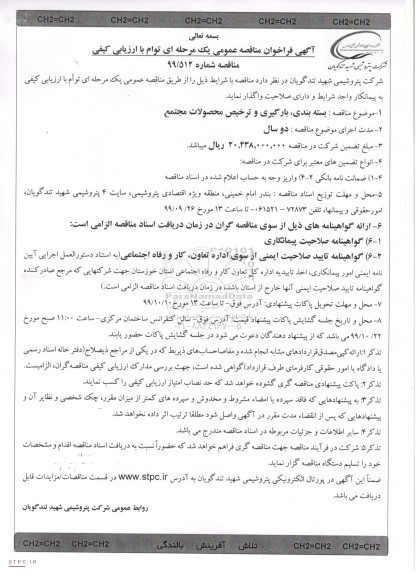 CH2=CH2 CH2=CH2 CH2=CH2 CH2=CH2 CH2=CH2
بسمه تعالی
آگهی فراخوان مناقصه عمومی یک مرحله ای توام با ارزیابی کیفی
مناقصه شماره ۹۹/۵۱۲
شرکت پتروشیمی شهید تندگویان
شرکت پتروشیمی شهید تندگویان در نظر دارد مناقصه با شرایط ذیل را از طریق مناقصه عمومی یک مرحله ای توأم با ارزیابی کیفی
به پیمانکار واجد شرایط و دارای صلاحیت واگذار نماید.
۱-موضوع مناقصه : بسته بندی، بارگیری و ترخیص محصولات مجتمع
۲- مدت اجرای موضوع مناقصه : دو سال
۳- مبلغ تضمین شرکت در مناقصه ۲۰,۴۳۸,۰۰۰,۰۰۰ ریال میباشد.
۴- انواع تضمین های معتبر برای شرکت در مناقصه:
۴-۱) ضمانت نامه بانکی ۴-۲) واریز وجه به حساب اعلام شده در اسناد مناقصه
۵-محل و مهلت توزیع اسناد مناقصه : بندر امام خمینی، منطقه ویژه اقتصادی پتروشیمی، سایت ۴ پتروشیمی شهید تندگویان،
امورحقوقی و پیمانها، تلفن ۷۲۸۷۳-۰۶۱۵۲۱ تا ساعت ۱۳ مورخ ۹۹/۰۹/۲۶
۶- ارائه گواهینامه های ذیل از سوی مناقصه گران در زمان دریافت اسناد مناقصه الزامی است:
۶-۱) گواهینامه صلاحیت پیمانکاری
۶-۲) گواهینامه تایید صلاحیت ایمنی از سوی اداره تعاون، کار و رفاه اجتماعی(به استناد دستورالعمل اجرایی آیین
نامه ایمنی امور پیمانکاری، اخذ تاییدیه اداره کل تعاون کار و رفاه اجتماعی استان خوزستان جهت شرکتهایی که مرجع صادرکننده
گواهینامه تایید صلاحیت ایمنی آنها خارج از استان باشد، در زمان دریافت اسناد مناقصه الزامی است.)
۷- محل و مهلت تحویل پاکات پیشنهادی: آدرس فوق- تا ساعت ۱۳ مورخ ۹۹/۱۰/۱۰
۸- محل و تاریخ جلسه گشایش پاکات پیشنهاد قیمت: آدرس فوق- سالن کنفرانس ساختمان مرکزی- ساعت ۱۱:۰۰ صبح مورخ
۹۹/۱۰/۲۲ می باشد که از پیشنهاد دهندگان دعوت می شود در جلسه گشایش پاکات حضور یابند.
تذکر۱:ارائه کپی مصدق قراردادهای مشابه انجام شده و مفاصاحساب‌های ذیربط که در یکی از مراجع ذیصلاح(دفترخانه اسناد رسمی
یا دادگاه یا امور حقوقی کارفرمای طرف قرارداد)گواهی شده است، جهت بررسی مدارک ارزیابی کیفی مناقصه‌گران، الزامیست.
تذکر۲: پاکت پیشنهادی مناقصه گری گشوده خواهد شد که حد نصاب امتیاز ارزیابی کیفی را کسب نمایند.
تذکر۳: به پیشنهادهایی که فاقد سپرده یا امضاء مشروط و مخدوش و سپرده های کمتر از میزان مقرر، چک شخصی و نظایر آن و
پیشنهادهایی که پس از انقضاء مدت مقرر در آگهی واصل شود مطلقا ترتیب اثر داده نخواهد شد.
تذکر۴: سایر اطلاعات و جزئیات مربوطه در اسناد مناقصه مندرج می باشد.
تذکر۵: شرکت در فرآیند مناقصه جهت مناقصه گری فراهم خواهد شد که حضوراً نسبت به دریافت اسناد مناقصه اقدام و مشخصات
خود را تسلیم دستگاه مناقصه گزار نماید.
ضمناً این آگهی در پورتال الکترونیکی پتروشیمی شهید تندگویان به آدرس www.stpc.ir در قسمت مناقصات/مزایدات قابل
دریافت می باشد.
روابط عمومی شرکت پتروشیمی شهید تندگویان
CH2=CH2 CH2=CH2 تلاش آفرینش بالندگی CH2=CH2 CH2=CH2
STPC.IR